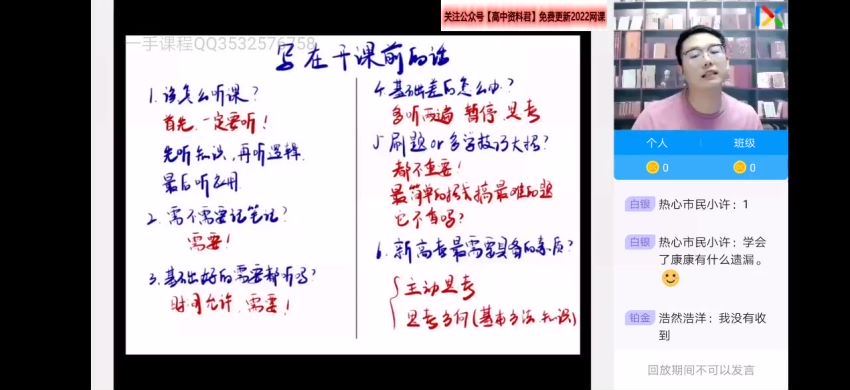 关注公众号【高中资料君】免费更新2022网课
一手课程QQ3532576758
写在干课前的话
1. 该怎么听课?
首先,一定要听!
先听知识,再听逻辑
最后听应用
2. 需不需要记笔记?
需要!
3. 基础好的需要都听吗?
时间允许,需要!
4. 基础差的怎么办?
多听两遍 暂停 思考
5. 刷题or多学技巧大招?
都不重要!
最简单的招式搞最难的题
它不香吗?
6. 新高考最需要具备的素质?
主动思考
思考方向(基本方法 知识)
个人
班级
0
0
白银 热心市民小许:1
白银 热心市民小许:学会
了康康有什么遗漏。
铂金 浩然浩洋:我没有收
到
回放期间不可以发言